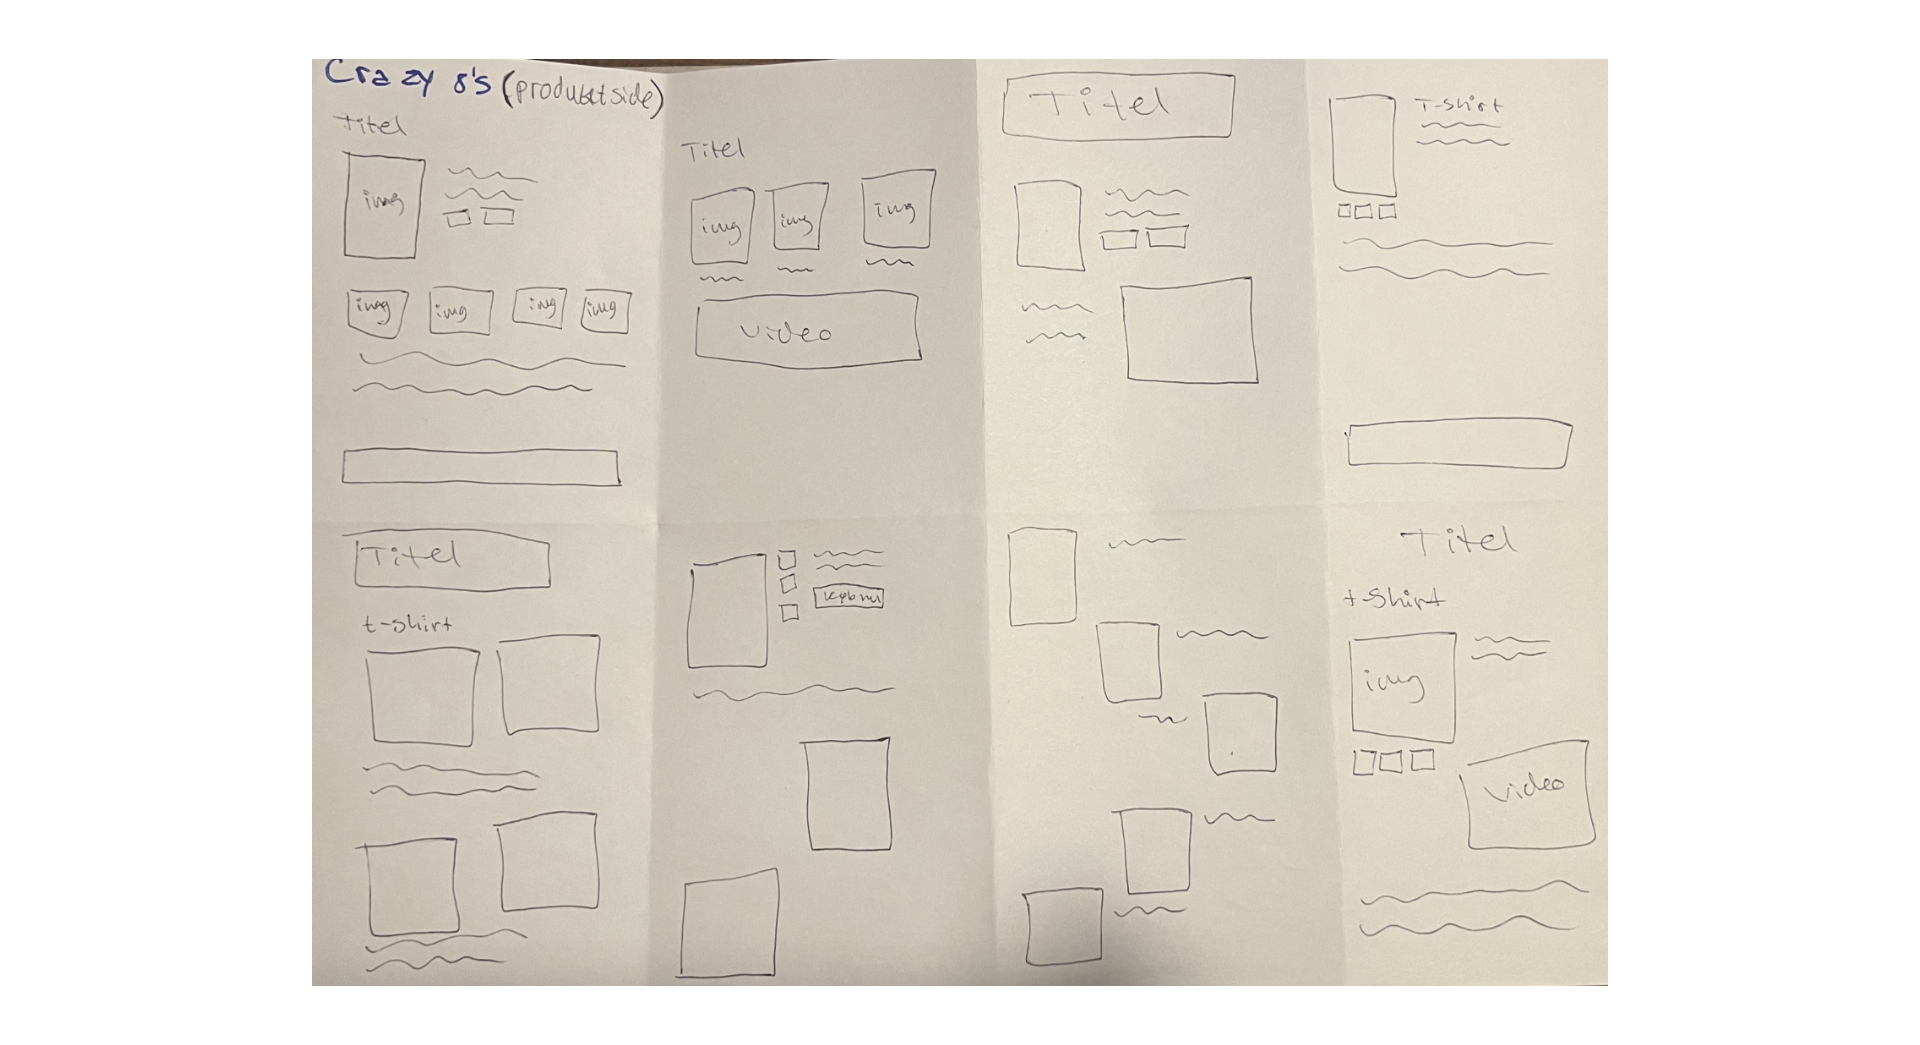 Crazy 8's (produktside)
Titel
img
img
img
img
img
Titel
img
img
img
Video
Titel
T-shirt
Titel
t-shirt
Køb nu
Titel
t-shirt
img
Video